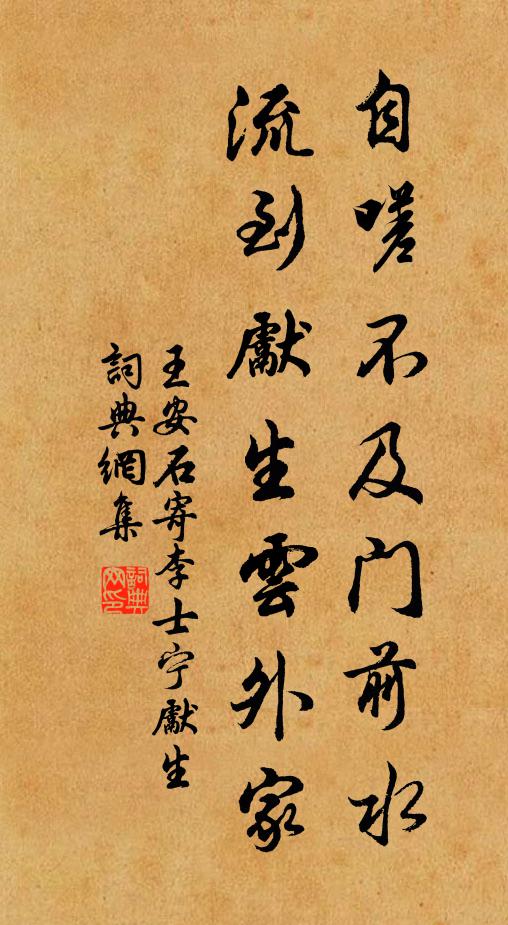 自嗟不及门前水
流到獻生雲外家
王安石寄李士宁獻生
詞典網集
詞典网印